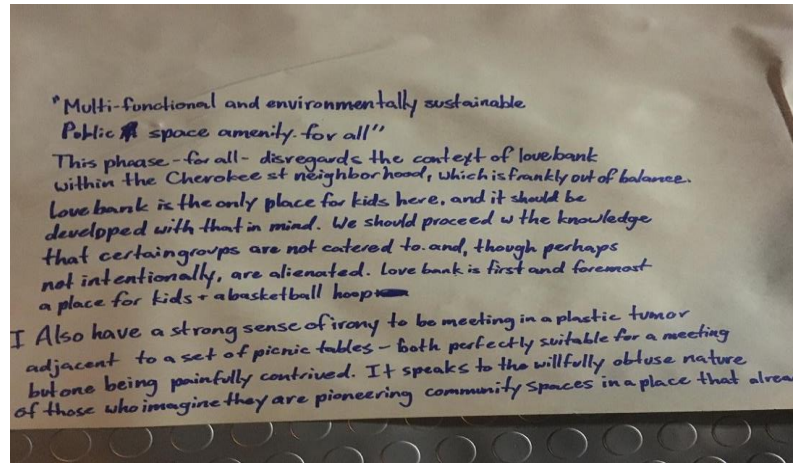 "Multi-functional and environmentally sustainable
Public space amenity for all"
This phrase - for all - disregards the context of lovebank
within the Cherokee st neighborhood, which is frankly out of balance.
Love bank is the only place for kids here, and it should be
developed with that in mind. We should proceed w the knowledge
that certain groups are not catered to and, though perhaps
not intentionally, are alienated. Love bank is first and foremost
a place for kids + a basketball hoop
I Also have a strong sense of irony to be meeting in a plastic tumor
adjacent to a set of picnic tables - both perfectly suitable for a meeting
but one being painfully contrived. It speaks to the willfully obtuse nature
of those who imagine they are pioneering community spaces in a place that alrea